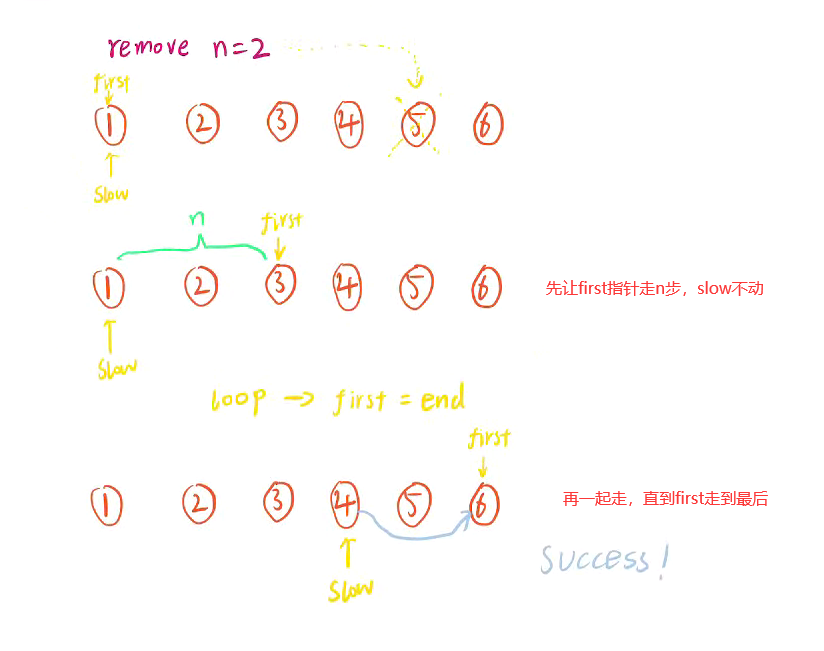 remove n=2
first
1 2 3 4 5 6
slow
n first
1 2 3 4 5 6 先让first指针走n步，slow不动
slow
loop → first = end
first
1 2 3 4 5 6 再一起走，直到first走到最后
slow
success!